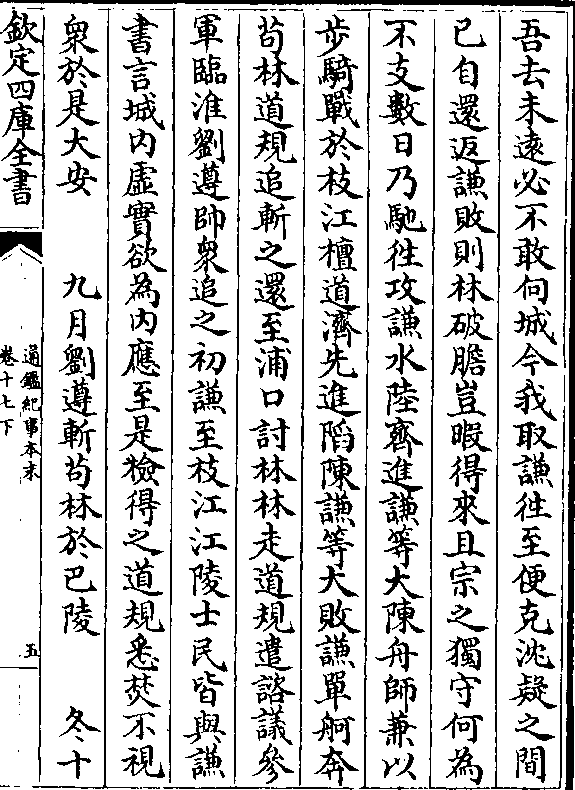 吾去未遠必不敢向城今我取謙徃至便克沈疑之間
已自還返謙敗則林破膽豈暇得來且宗之獨守何為
不支數日乃馳徃攻謙水陸齊進謙等大陳舟師兼以
步騎戰於枝江檀道濟先進䧟陳謙等大敗謙單舸奔
苟林道規追斬之還至浦口討林林走道規遣諮議參
軍臨淮劉遵帥衆追之初謙至枝江江陵士民皆與謙
書言城内虛實欲為内應至是檢得之道規悉焚不視
衆於是大安　九月劉遵斬苟林於巴陵　冬十
欽定四庫全書
通鑑紀事本末
卷十七下
五